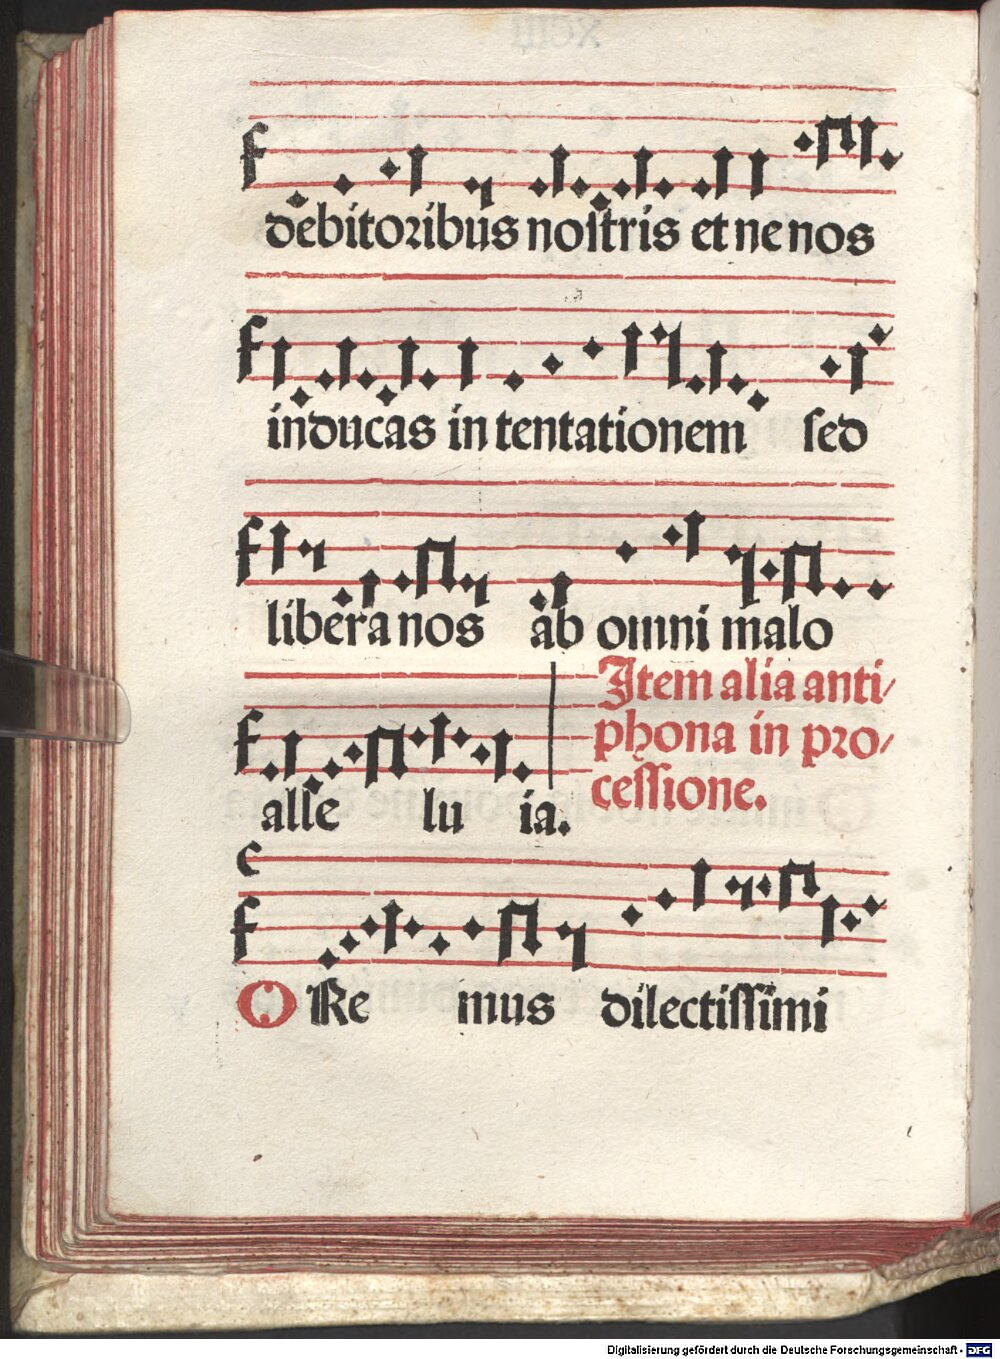 debitoribus nostris et ne nos
inducas in tentationem sed
libera nos ab omni malo
alle lu ia.
Item alia anti/
phona in pro/
cessione.
ORe mus dilectissimi
Digitalisierung gefördert durch die Deutsche Forschungsgemeinschaft - DFG